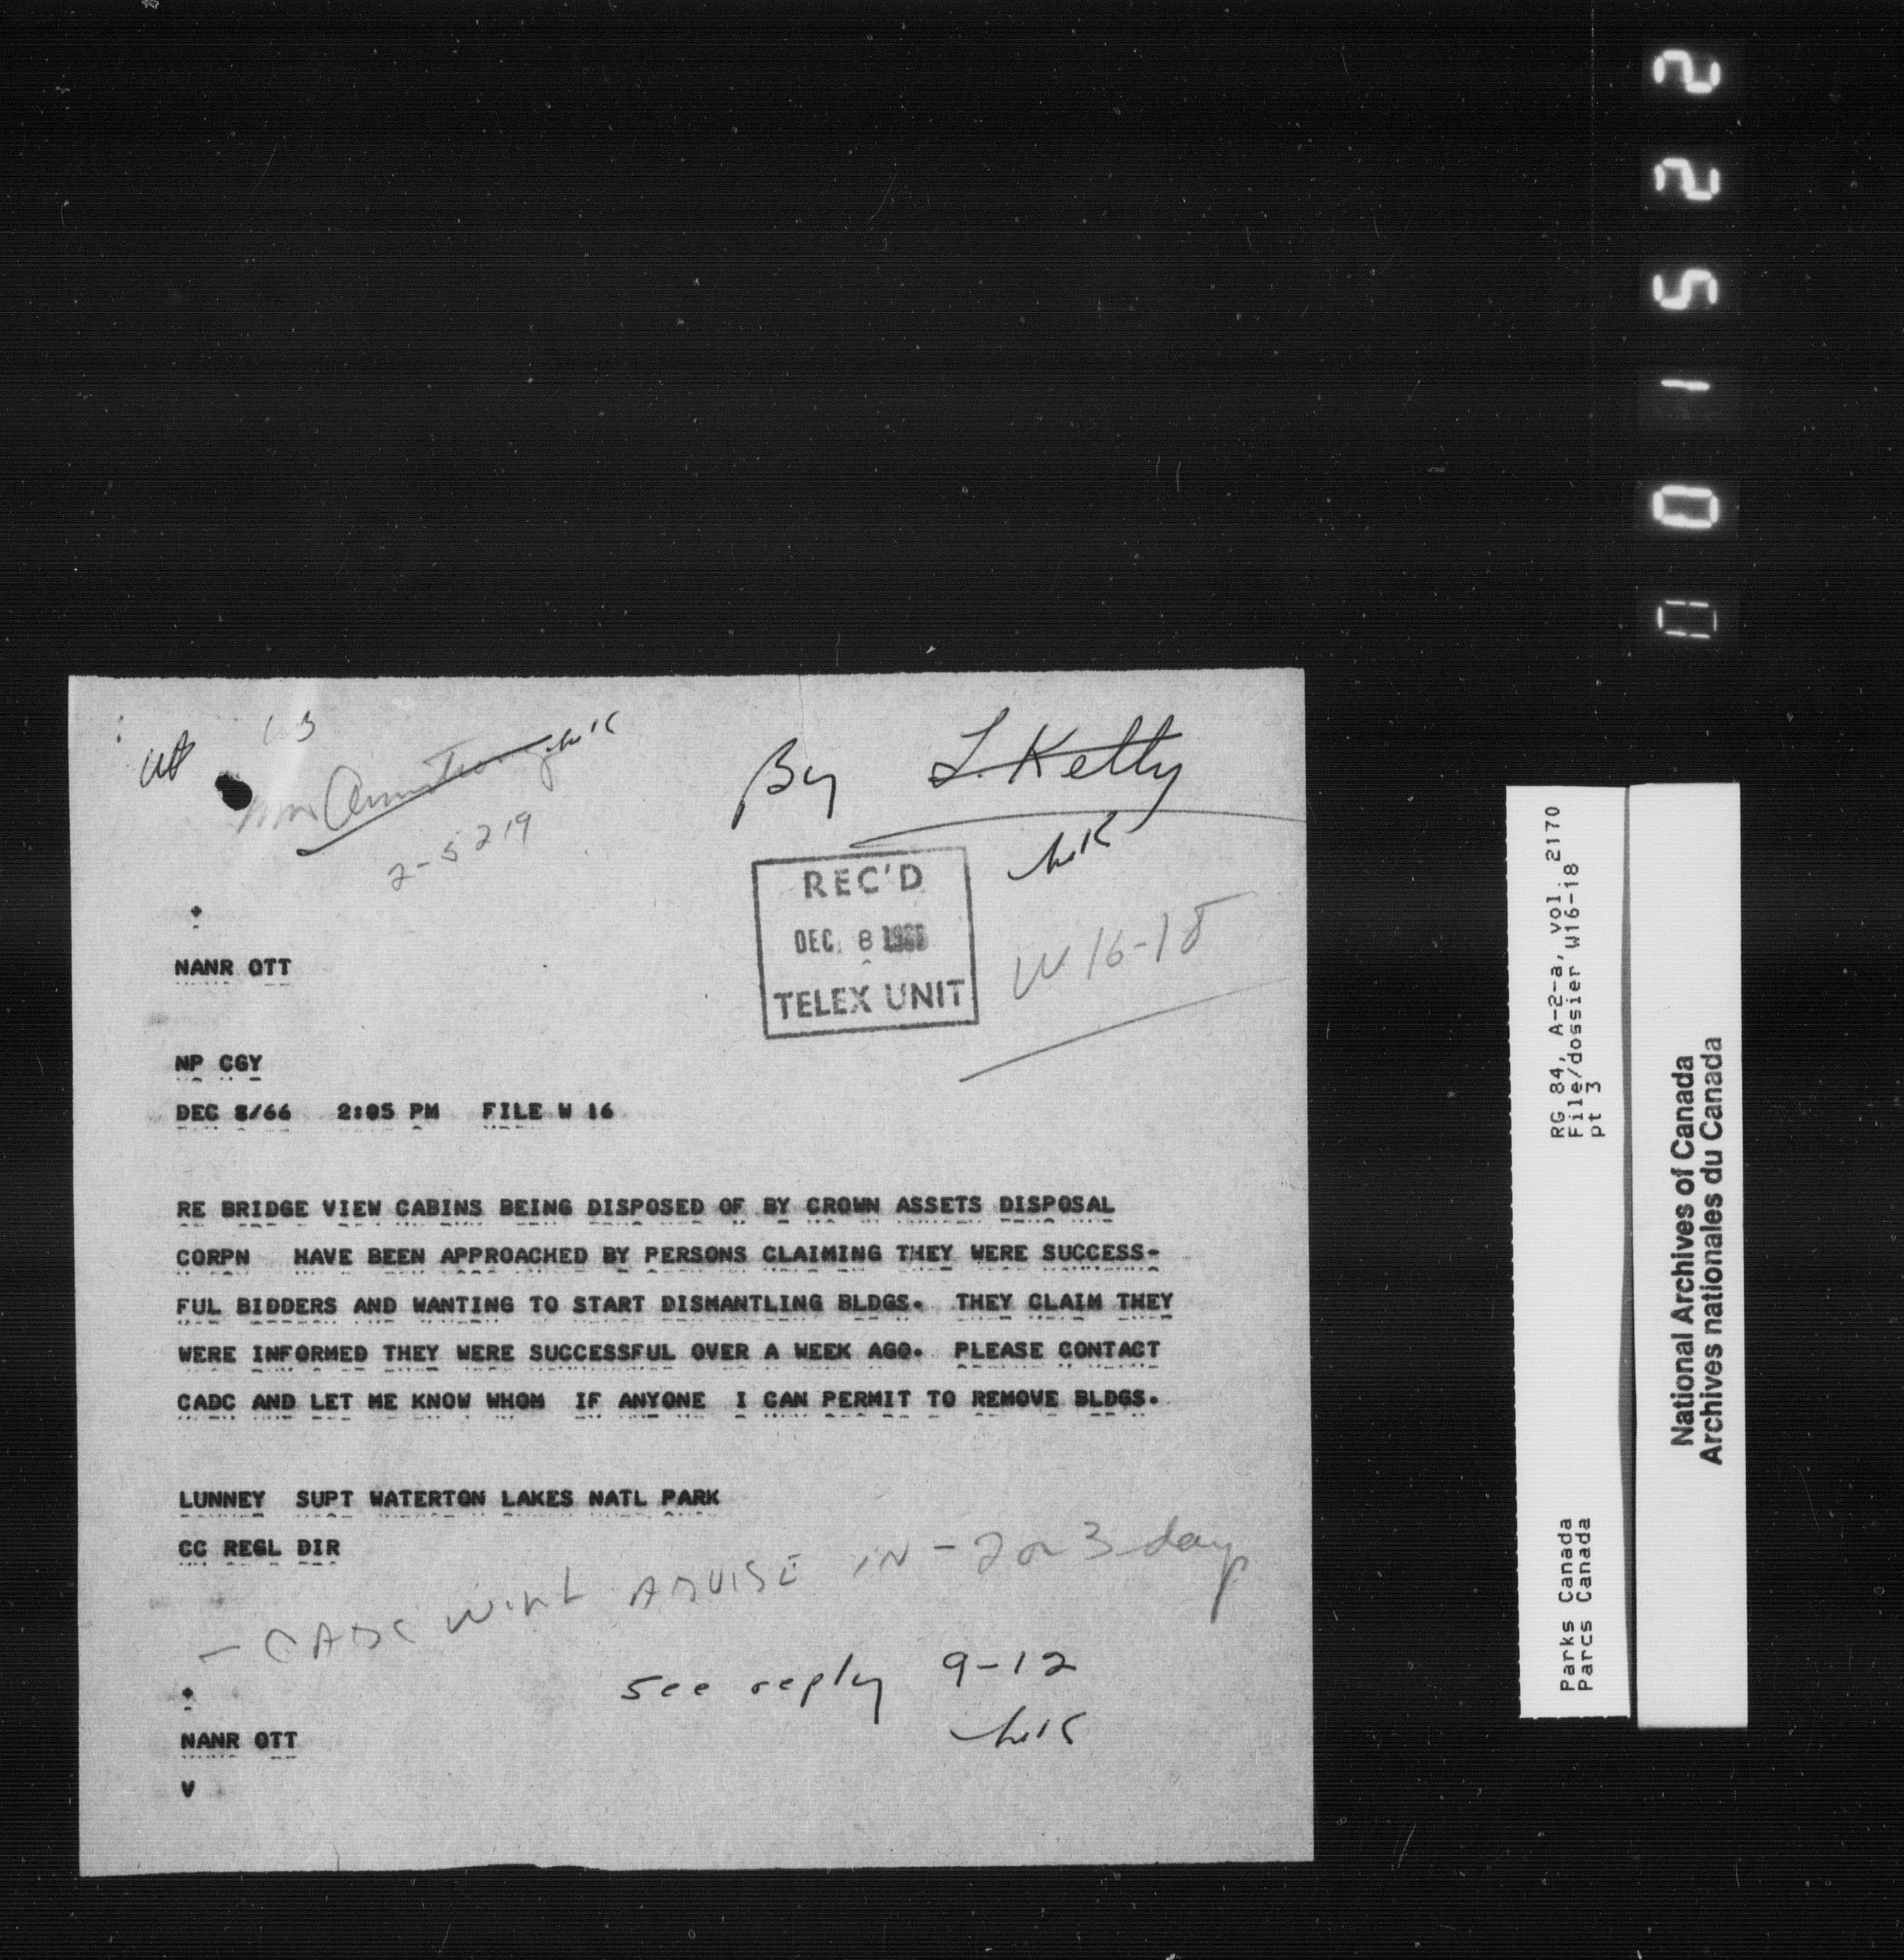 By L. Kelly
2-5219
REC'D
DEC. 8 1966
TELEX UNIT
W16-18
NANR OTT
NP CGY
DEC 8/66 2:05 PM FILE W 16
RE BRIDGE VIEW CABINS BEING DISPOSED OF BY CROWN ASSETS DISPOSAL
CORPN HAVE BEEN APPROACHED BY PERSONS CLAIMING THEY WERE SUCCESS-
FUL BIDDERS AND WANTING TO START DISMANTLING BLDGS. THEY CLAIM THEY
WERE INFORMED THEY WERE SUCCESSFUL OVER A WEEK AGO. PLEASE CONTACT
CADC AND LET ME KNOW WHOM IF ANYONE I CAN PERMIT TO REMOVE BLDGS.
LUNNEY SUPT WATERTON LAKES NATL PARK
CC REGL DIR
- CADC WILL ADVISE IN - 2 or 3 days
see reply 9-12
NANR OTT
V
001522
RG 84, A-2-a, vol. 2170
File/dossier W16-18
pt 3
Parks Canada
Parcs Canada
National Archives of Canada
Archives nationales du Canada